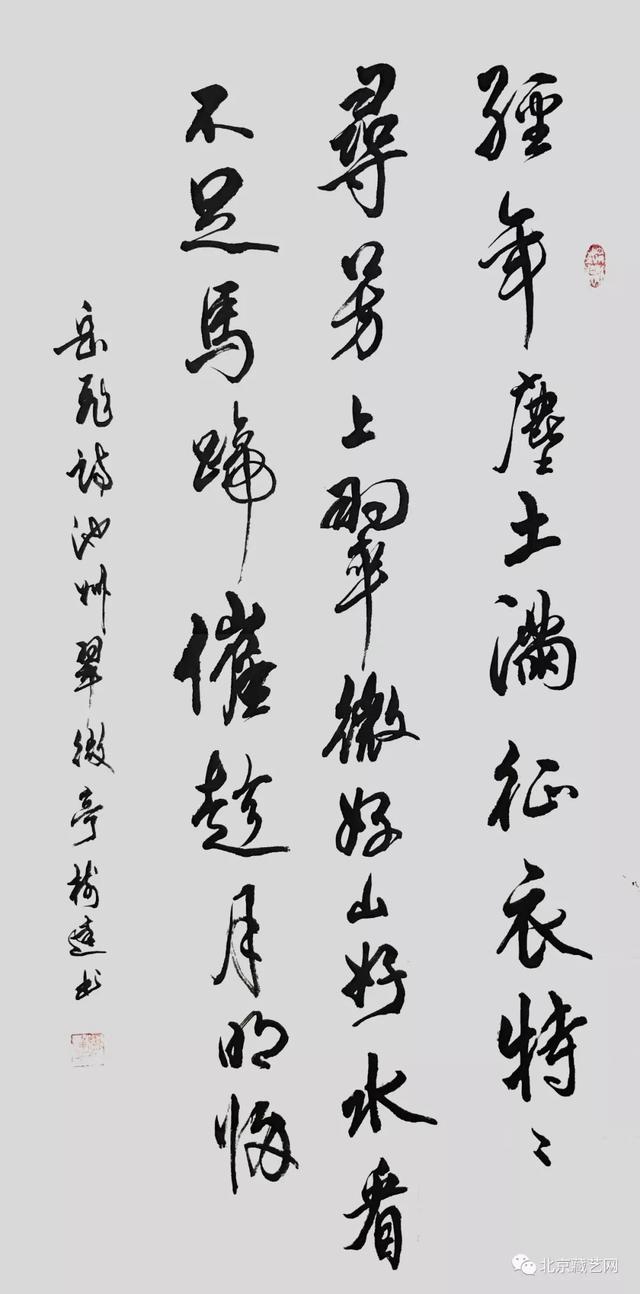 經年塵土滿征衣特〻
尋芳上翠微好山好水看
不足馬蹄催趁月明歸
岳飛詩池州翠微亭 達書
北京藏艺网